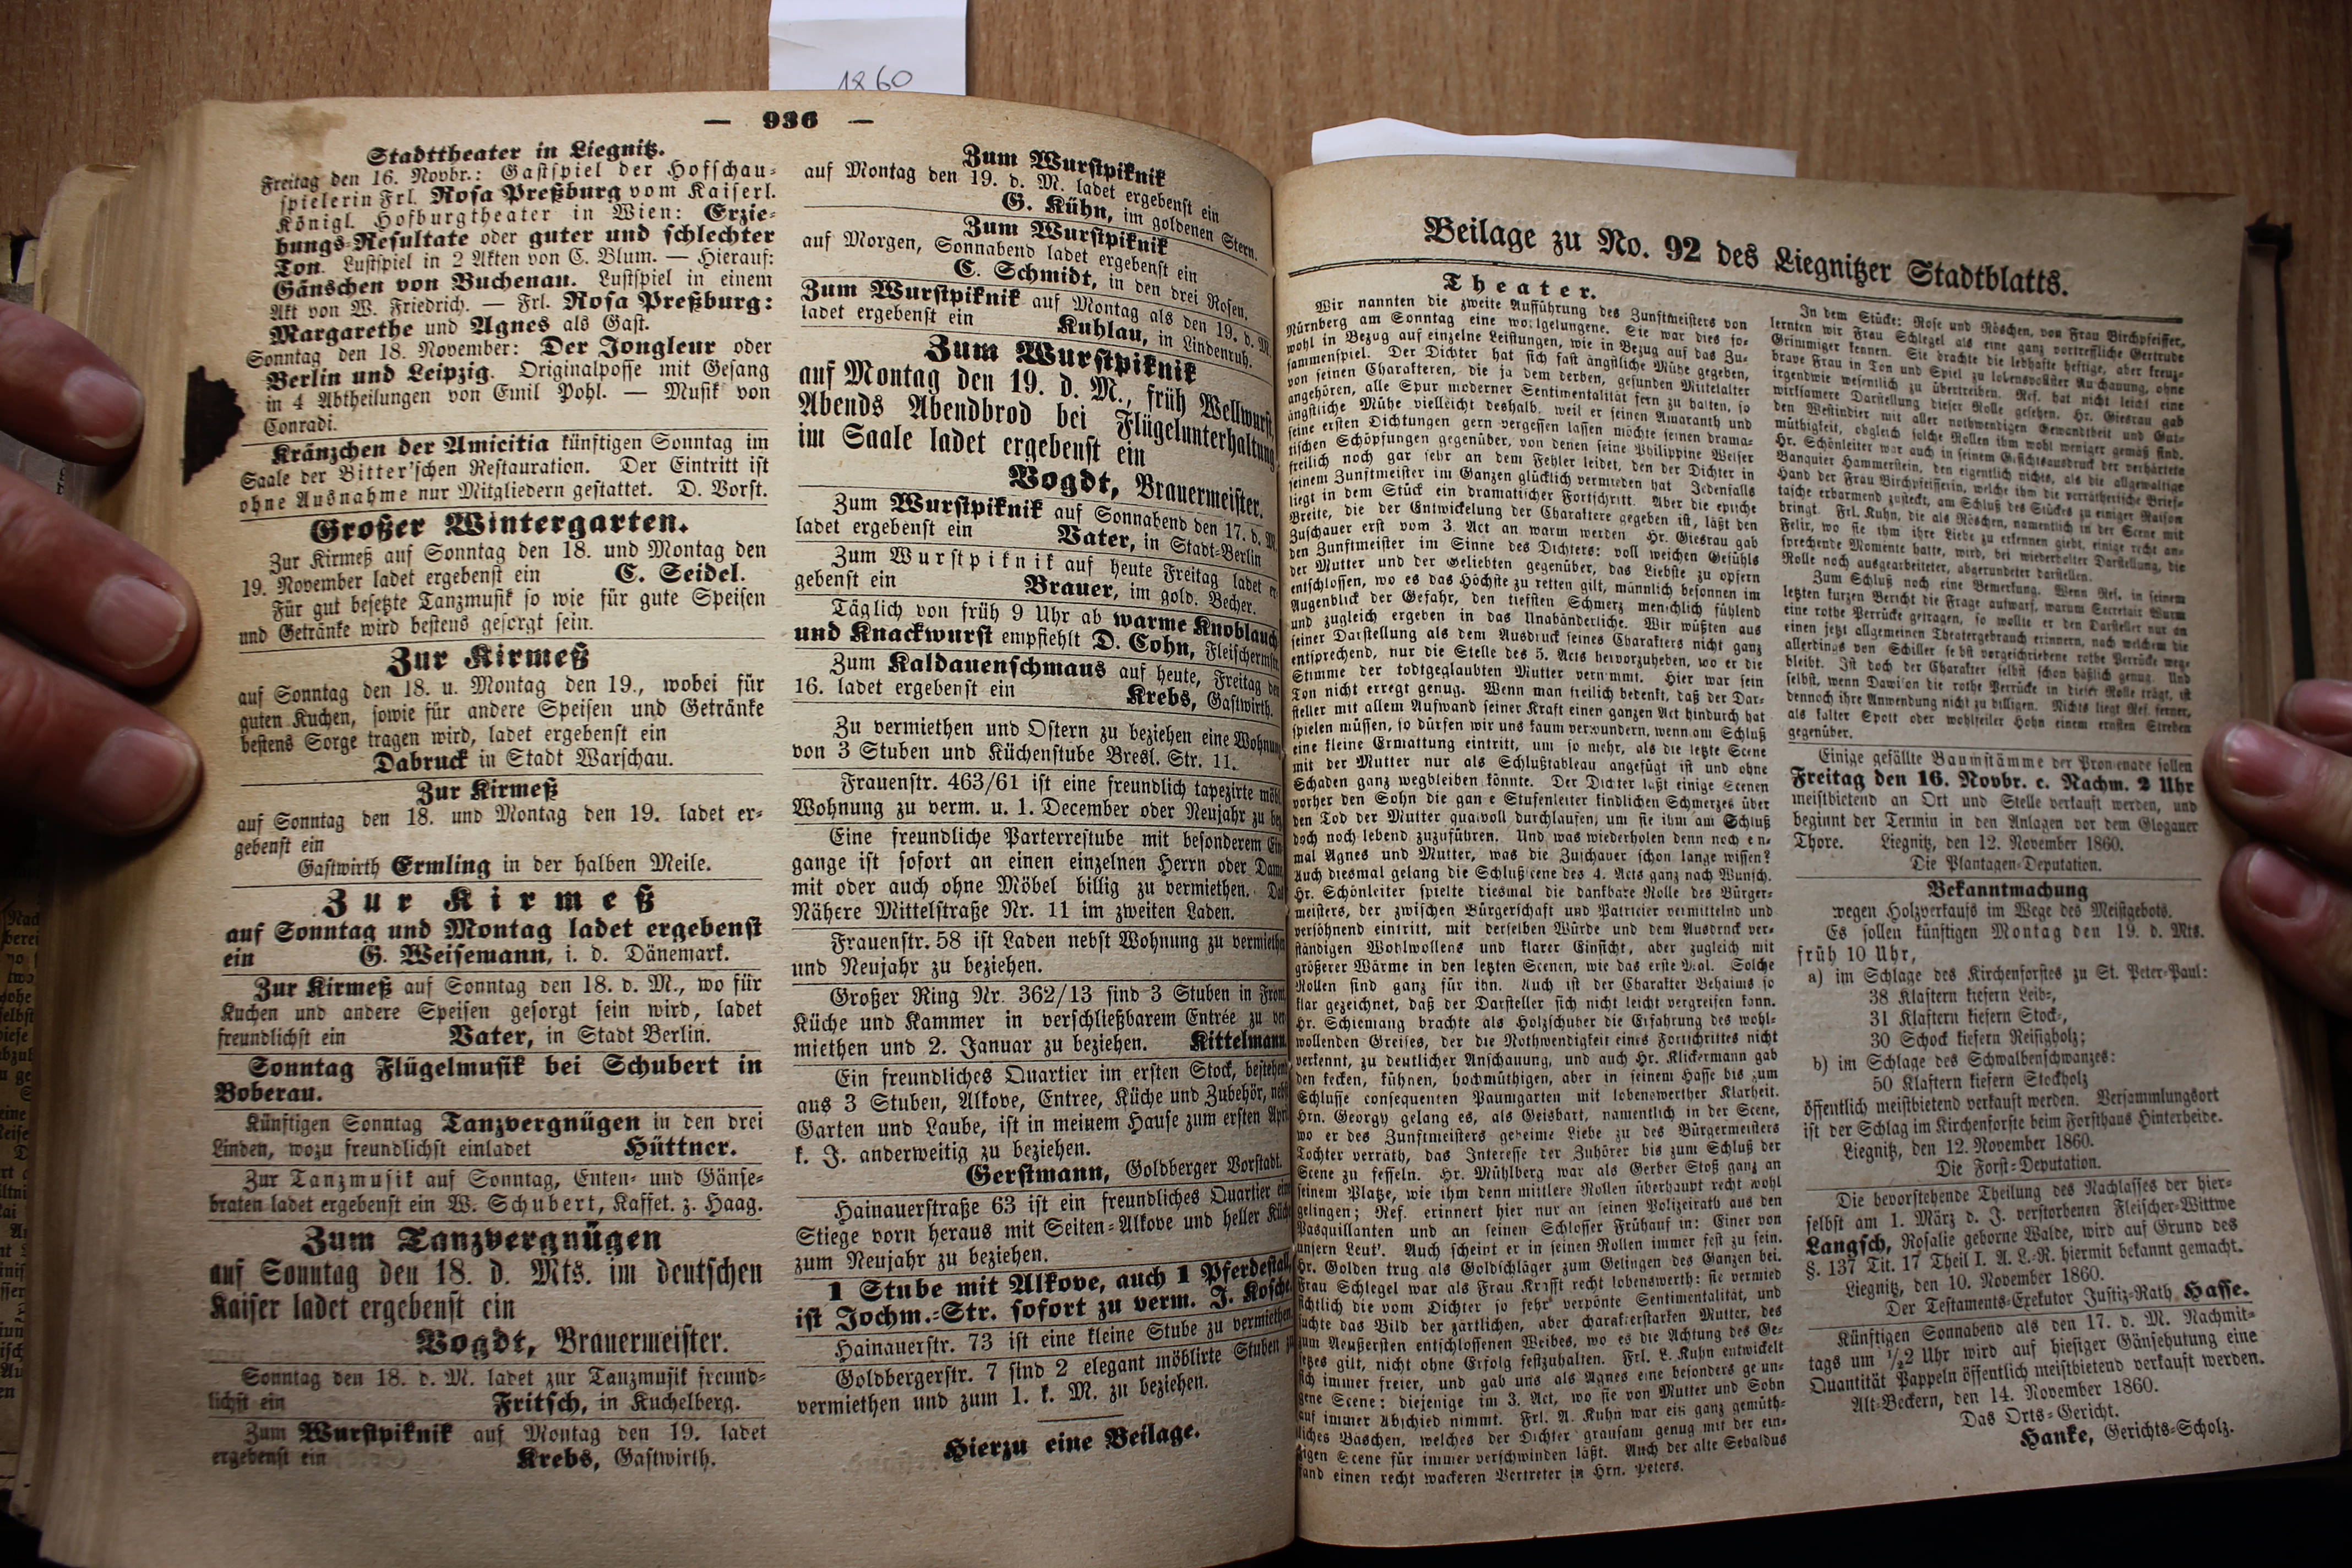 1860
— 936 —
Stadttheater in Liegnitz.
Freitag den 16. Novbr.: Gastspiel der Hofschau-
spielerin Frl. Rosa Preßburg vom Kaiserl.
Königl. Hofburgtheater in Wien: Erzie-
hungs-Resultate oder guter und schlechter
Ton. Lustspiel in 2 Akten von C. Blum. — Hierauf:
Gänschen von Buchenau. Lustspiel in einem
Akt von W. Friedrich. — Frl. Rosa Preßburg:
Margarethe und Agnes als Gast.
Sonntag den 18. November: Der Jongleur oder
Berlin und Leipzig. Originalposse mit Gesang
in 4 Abtheilungen von Emil Pohl. — Musik von
Conradi.
Kränzchen der Amicitia künftigen Sonntag im
Saale der Bitter'schen Restauration. Der Eintritt ist
ohne Ausnahme nur Mitgliedern gestattet. D. Vorst.
Großer Wintergarten.
Zur Kirmeß auf Sonntag den 18. und Montag den
19. November ladet ergebenst ein C. Seidel.
Für gut besetzte Tanzmusik so wie für gute Speisen
und Getränke wird bestens gesorgt sein.
Zur Kirmeß
auf Sonntag den 18. u. Montag den 19., wobei für
guten Kuchen, sowie für andere Speisen und Getränke
bestens Sorge tragen wird, ladet ergebenst ein
Dabruck in Stadt Warschau.
Zur Kirmeß
auf Sonntag den 18. und Montag den 19. ladet er-
gebenst ein
Gastwirth Ermling in der halben Meile.
Zur Kirmeß
auf Sonntag und Montag ladet ergebenst
ein G. Weisemann, i. d. Dänemark.
Zur Kirmeß auf Sonntag den 18. d. M., wo für
Kuchen und andere Speisen gesorgt sein wird, ladet
freundlichst ein Vater, in Stadt Berlin.
Sonntag Flügelmusik bei Schubert in
Boberau.
Künftigen Sonntag Tanzvergnügen in den drei
Linden, wozu freundlichst einladet Hüttner.
Zur Tanzmusik auf Sonntag, Enten- und Gänse-
braten ladet ergebenst ein W. Schubert, Kaffet. z. Haag.
Zum Tanzvergnügen
auf Sonntag den 18. d. Mts. im deutschen
Kaiser ladet ergebenst ein
Vogdt, Brauermeister.
Sonntag den 18. d. M. ladet zur Tanzmusik freund-
lichst ein Fritsch, in Kuchelberg.
Zum Wurstpiknik auf Montag den 19. ladet
ergebenst ein Krebs, Gastwirth.
Zum Wurstpiknik
auf Montag den 19. d. M. ladet ergebenst ein
G. Kühn, im goldenen Stern.
Zum Wurstpiknik
auf Morgen, Sonnabend ladet ergebenst ein
C. Schmidt, in den drei Rosen.
Zum Wurstpiknik auf Montag als den 19. d. M.
ladet ergebenst ein Kuhlau, in Lindenruh.
Zum Wurstpiknik
auf Montag den 19. d. M., früh Wellwurst,
Abends Abendbrod bei Flügelunterhaltung
im Saale ladet ergebenst ein
Vogdt, Brauermeister.
Zum Wurstpiknik auf Sonnabend den 17. d. M.
ladet ergebenst ein Vater, in Stadt-Berlin
Zum Wurstpiknik auf heute Freitag ladet er
gebenst ein Brauer, im gold. Becher.
Täglich von früh 9 Uhr ab warme Knoblauch
und Knackwurst empfiehlt D. Cohn, Fleischermstr.
Zum Kaldauenschmaus auf heute, Freitag den
16. ladet ergebenst ein Krebs, Gastwirth.
Zu vermiethen und Ostern zu beziehen eine Wohnung
von 3 Stuben und Küchenstube Bresl. Str. 11.
Frauenstr. 463/61 ist eine freundlich tapezirte möbl.
Wohnung zu verm. u. 1. December oder Neujahr zu bez
Eine freundliche Parterrestube mit besonderem Ein
gange ist sofort an einen einzelnen Herrn oder Dame
mit oder auch ohne Möbel billig zu vermiethen. Das
Nähere Mittelstraße Nr. 11 im zweiten Laden.
Frauenstr. 58 ist Laden nebst Wohnung zu vermiethen
und Neujahr zu beziehen.
Großer Ring Nr. 362/13 sind 3 Stuben in Front,
Küche und Kammer in verschließbarem Entrée zu ver
miethen und 2. Januar zu beziehen. Kittelmann.
Ein freundliches Quartier im ersten Stock, bestehend
aus 3 Stuben, Alkove, Entree, Küche und Zubehör, nebst
Garten und Laube, ist in meinem Hause zum ersten April
k. J. anderweitig zu beziehen.
Gerstmann, Goldberger Vorstadt.
Hainauerstraße 63 ist ein freundliches Quartier eine
Stiege vorn heraus mit Seiten-Alkove und heller Küche
zum Neujahr zu beziehen.
1 Stube mit Alkove, auch 1 Pferdestall
ist Jochm.-Str. sofort zu verm. J. Koschel
Hainauerstr. 73 ist eine kleine Stube zu vermiethen
Goldbergerstr. 7 sind 2 elegant möblirte Stuben zu
vermiethen und zum 1. k. M. zu beziehen.
Hierzu eine Beilage.
Beilage zu No. 92 des Liegnitzer Stadtblatts.
Theater.
Wir nannten die zweite Aufführung des Zunftmeisters von
Nürnberg am Sonntag eine wohlgelungene. Sie war dies so-
wohl in Bezug auf einzelne Leistungen, wie in Bezug auf das Zu-
sammenspiel. Der Dichter hat sich fast ängstliche Mühe gegeben,
von seinen Charakteren, die ja dem derben, gesunden Mittelalter
angehören, alle Spur moderner Sentimentalität fern zu halten, so
ängstliche Mühe vielleicht deshalb, weil er seinen Amaranth und
seine ersten Dichtungen gern vergessen lassen möchte seinen drama-
tischen Schöpfungen gegenüber, von denen seine Philippine Welser
freilich noch gar sehr an dem Fehler leidet, den der Dichter in
seinem Zunftmeister im Ganzen glücklich vermieden hat Jedenfalls
liegt in dem Stück ein dramatischer Fortschritt. Aber die epische
Breite, die der Entwickelung der Charaktere gegeben ist, läßt den
Zuschauer erst vom 3. Act an warm werden Hr. Giesrau gab
den Zunftmeister im Sinne des Dichters: voll weichen Gefühls
der Mutter und der Geliebten gegenüber, das Liebste zu opfern
entschlossen, wo es das Höchste zu retten gilt, männlich besonnen im
Augenblick der Gefahr, den tiefsten Schmerz menschlich fühlend
und zugleich ergeben in das Unabänderliche. Wir wüßten aus
seiner Darstellung als dem Ausdruck seines Charakters nicht ganz
entsprechend, nur die Stelle des 5. Acts hervorzuheben, wo er die
Stimme der todtgeglaubten Mutter vernimmt. Hier war sein
Ton nicht erregt genug. Wenn man freilich bedenkt, daß der Dar-
steller mit allem Aufwand seiner Kraft einen ganzen Act hindurch hat
spielen müssen, so dürfen wir uns kaum verwundern, wenn am Schluß
eine kleine Ermattung eintritt, um so mehr, als die letzte Scene
mit der Mutter nur als Schlußtableau angefügt ist und ohne
Schaden ganz wegbleiben könnte. Der Dichter läßt einige Scenen
vorher den Sohn die gan e Stufenleiter kindlichen Schmerzes über
den Tod der Mutter qualvoll durchlaufen, um sie ihm am Schluß
doch noch lebend zuzuführen. Und was wiederholen denn noch ein-
mal Agnes und Mutter, was die Zuschauer schon lange wissen?
Auch diesmal gelang die Schlußscene des 4. Acts ganz nach Wunsch.
Hr. Schönleiter spielte diesmal die dankbare Rolle des Bürger-
meisters, der zwischen Bürgerschaft und Patricier vermittelnd und
versöhnend eintritt, mit derselben Würde und dem Ausdruck ver-
ständigen Wohlwollens und klarer Einsicht, aber zugleich mit
größerer Wärme in den letzten Scenen, wie das erste Mal. Solche
Rollen sind ganz für ihn. Auch ist der Charakter Behaims so
klar gezeichnet, daß der Darsteller sich nicht leicht vergreifen kann.
Hr. Schiemang brachte als Holzschuher die Erfahrung des wohl-
wollenden Greises, der die Nothwendigkeit eines Fortschrittes nicht
verkennt, zu deutlicher Anschauung, und auch Hr. Klickermann gab
den kecken, kühnen, hochmüthigen, aber in seinem Hasse bis zum
Schlusse consequenten Paumgarten mit lobenswerther Klarheit.
Hrn. Georgy gelang es, als Geisbart, namentlich in der Scene,
wo er des Zunftmeisters geheime Liebe zu des Bürgermeisters
Tochter verräth, das Interesse der Zuhörer bis zum Schluß der
Scene zu fesseln. Hr. Mühlberg war als Gerber Stoß ganz an
seinem Platze, wie ihm denn mittlere Rollen überhaupt recht wohl
gelingen; Ref. erinnert hier nur an seinen Polizeirath aus den
Pasquillanten und an seinen Schlosser Frühauf in: Einer von
unsern Leut'. Auch scheint er in seinen Rollen immer fest zu sein.
Hr. Golden trug als Goldschläger zum Gelingen des Ganzen bei.
Frau Schlegel war als Frau Krafft recht lobenswerth: sie vermied
sichtlich die vom Dichter so sehr verpönte Sentimentalität, und
suchte das Bild der zärtlichen, aber charakterstarken Mutter, des
zum Aeußersten entschlossenen Weibes, wo es die Achtung des Ge-
setzes gilt, nicht ohne Erfolg festzuhalten. Frl. L. Kuhn entwickelt
sich immer freier, und gab uns als Agnes eine besonders ge un-
gene Scene: diejenige im 3. Act, wo sie von Mutter und Sohn
auf immer Abschied nimmt. Frl. A. Kuhn war ein ganz gemüth-
liches Baschen, welches der Dichter grausam genug mit der ein-
zigen Scene für immer verschwinden läßt. Auch der alte Sebaldus
fand einen recht wackeren Vertreter in Hrn. Peters.
In dem Stücke: Rose und Röschen, von Frau Birchpfeiffer,
lernten wir Frau Schlegel als eine ganz vortreffliche Gertrude
Grimmiger kennen. Sie brachte die lebhafte heftige, aber kreuz-
brave Frau in Ton und Spiel zu lobensvollster Anschauung, ohne
irgendwie wesentlich zu übertreiben. Ref. hat nicht leicht eine
wirksamere Darstellung dieser Rolle gesehen. Hr. Giesrau gab
den Westindier mit aller nothwendigen Gewandtheit und Gut-
müthigkeit, obgleich solche Rollen ihm wohl weniger gemäß sind.
Hr. Schönleiter war auch in seinem Gesichtsausdruck der verhärtete
Banquier Hammerstein, den eigentlich nichts, als die allgewaltige
Hand der Frau Birchpfeifferin, welche ihm die verrätherische Brief-
tasche erbarmend zusteckt, am Schluß des Stückes zu einiger Raison
bringt. Frl. Kuhn, die als Röschen, namentlich in der Scene mit
Felix, wo sie ihm ihre Liebe zu erkennen giebt, einige recht an-
sprechende Momente hatte, wird, bei wiederholter Darstellung, die
Rolle noch ausgearbeiteter, abgerundeter darstellen.
Zum Schluß noch eine Bemerkung. Wenn Ref. in seinem
letzten kurzen Bericht die Frage aufwarf, warum Secretair Wurm
eine rothe Perrücke getragen, so wollte er den Darsteller nur an
einen jetzt allgemeinen Theatergebrauch erinnern, nach welchem die
allerdings von Schiller selbst vorgeschriebene rothe Perrücke weg-
bleibt. Ist doch der Charakter selbst schon häßlich genug. Und
selbst, wenn Dawison die rothe Perrücke in dieser Rolle trägt, ist
dennoch ihre Anwendung nicht zu billigen. Nichts liegt Ref. ferner,
als kalter Spott oder wohlfeiler Hohn einem ernsten Streben
gegenüber.
Einige gefällte Baumstämme der Promenade sollen
Freitag den 16. Novbr. c. Nachm. 2 Uhr
meistbietend an Ort und Stelle verkauft werden, und
beginnt der Termin in den Anlagen vor dem Glogauer
Thore. Liegnitz, den 12. November 1860.
Die Plantagen-Deputation.
Bekanntmachung
wegen Holzverkaufs im Wege des Meistgebots.
Es sollen künftigen Montag den 19. d. Mts.
früh 10 Uhr,
a) im Schlage des Kirchenforstes zu St. Peter-Paul:
38 Klaftern kiefern Leib-,
31 Klaftern kiefern Stock-,
30 Schock kiefern Reisigholz;
b) im Schlage des Schwalbenschwanzes:
50 Klaftern kiefern Stockholz
öffentlich meistbietend verkauft werden. Versammlungsort
ist der Schlag im Kirchenforste beim Forsthaus Hinterheide.
Liegnitz, den 12. November 1860.
Die Forst-Deputation.
Die bevorstehende Theilung des Nachlasses der hier-
selbst am 1. März d. J. verstorbenen Fleischer-Wittwe
Langsch, Rosalie geborne Walde, wird auf Grund des
§. 137 Tit. 17 Theil I. A. L.-R. hiermit bekannt gemacht.
Liegnitz, den 10. November 1860.
Der Testaments-Exekutor Justiz-Rath Hasse.
Künftigen Sonnabend als den 17. d. M. Nachmit-
tags um ½2 Uhr wird auf hiesiger Gänsehutung eine
Quantität Pappeln öffentlich meistbietend verkauft werden.
Alt-Beckern, den 14. November 1860.
Das Orts-Gericht.
Hanke, Gerichts-Scholz.